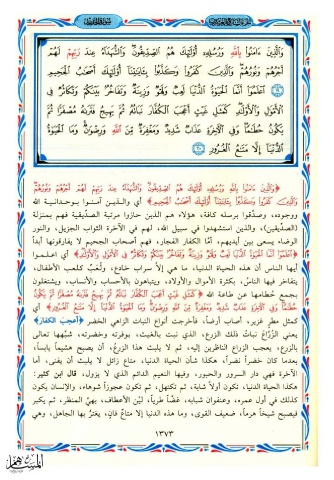 وَالَّذِينَ ءَامَنُوا بِاللَّهِ وَرُسُلِهِ أُولَٰئِكَ هُمُ الصِّدِّيقُونَ وَالشُّهَدَاءُ عِندَ رَبِّهِمْ لَهُمْ
أَجْرُهُمْ وَنُورُهُمْ وَالَّذِينَ كَفَرُوا وَكَذَّبُوا بِآيَاتِنَا أُولَٰئِكَ أَصْحَابُ الْجَحِيمِ
اعْلَمُوا أَنَّمَا الْحَيَاةُ الدُّنْيَا لَعِبٌ وَلَهْوٌ وَزِينَةٌ وَتَفَاخُرٌ بَيْنَكُمْ وَتَكَاثُرٌ فِي
الْأَمْوَالِ وَالْأَوْلَادِ كَمَثَلِ غَيْثٍ أَعْجَبَ الْكُفَّارَ نَبَاتُهُ ثُمَّ يَهِيجُ فَتَرَاهُ مُصْفَرًّا ثُمَّ
يَكُونُ حُطَامًا وَفِي الْآخِرَةِ عَذَابٌ شَدِيدٌ وَمَغْفِرَةٌ مِّنَ اللَّهِ وَرِضْوَانٌ وَمَا الْحَيَاةُ
الدُّنْيَا إِلَّا مَتَاعُ الْغُرُورِ
﴿وَالَّذِينَ ءَامَنُوا بِاللَّهِ وَرُسُلِهِ أُولَٰئِكَ هُمُ الصِّدِّيقُونَ وَالشُّهَدَاءُ عِندَ رَبِّهِمْ لَهُمْ أَجْرُهُمْ وَنُورُهُمْ
وَالَّذِينَ كَفَرُوا وَكَذَّبُوا بِآيَاتِنَا أُولَٰئِكَ أَصْحَابُ الْجَحِيمِ﴾ أي والذين آمنوا بوحدانية الله
ووجوده، وصدّقوا برسله كافة، هؤلاء هم الذين حازوا مرتبة الصدّيقية فهم بمنزلة
(الصديقين)، والذين استشهدوا في سبيل الله، لهم في الآخرة الثواب الجزيل، والنور
الوضاء يسعى بين أيديهم، أمّا الكفار الفجار، فهم أصحاب الجحيم لا يفارقونها أبداً
﴿اعْلَمُوا أَنَّمَا الْحَيَاةُ الدُّنْيَا لَعِبٌ وَلَهْوٌ وَزِينَةٌ وَتَفَاخُرٌ بَيْنَكُمْ وَتَكَاثُرٌ فِي الْأَمْوَالِ وَالْأَوْلَادِ﴾ أي اعلموا
أيها الناس أن هذه الحياة الدنيا، ما هي إلاّ سراب خادع، ولُعَبٌ كلعب الأطفال،
يتفاخر فيها الناس، بكثرة الأموال والأولاد، ويتباهون بالأحساب والأنساب، ويشتغلون
بجمع حُطامها عن طاعة الله ﴿كَمَثَلِ غَيْثٍ أَعْجَبَ الْكُفَّارَ نَبَاتُهُ ثُمَّ يَهِيجُ فَتَرَاهُ مُصْفَرًّا ثُمَّ يَكُونُ
حُطَامًا وَفِي الْآخِرَةِ عَذَابٌ شَدِيدٌ وَمَغْفِرَةٌ مِّنَ اللَّهِ وَرِضْوَانٌ وَمَا الْحَيَاةُ الدُّنْيَا إِلَّا مَتَاعُ الْغُرُورِ﴾ أي
كمثل مطرٍ غزير، أصاب أرضاً، فأخرجت أنواع النبات الزاهي الخضر ﴿أعجب الكفار﴾ أي
يعني الزُّرَّاع نباتُ ذلك الزرع، الذي نبت بالغيث، بوفرته وخضرته، شبَّهها تعالى
بالزرع، يعجب الزراع الناظرين إليه، ثم لا يلبث هذا الزرع، أن يصبح هشيماً يابساً،
بعدما كان خضراً نضراً، هكذا شأن الحياة الدنيا، متاع زائل لا يلبث أن يفنى، أما
الآخرة فهي دار السرور والحبور، وفيها النعيم الدائم الذي لا يزول. قال ابن كثير:
هكذا الحياة الدنيا، تكون أولاً شابة، ثم تكتهل، ثم تكون عجوزاً شوهاء، والإنسان يكون
كذلك في أول عمره، وعنفوان شبابه، غضّاً طرياً، ليّن الأعطاف، بهيّ المنظر، ثم يكبر
فيصبح شيخاً هرماً، ضعيف القوى، وما هذه الدنيا إلا متاعٌ فانٍ، يغترُّ بها الجاهل، وهي
١٣٧٣